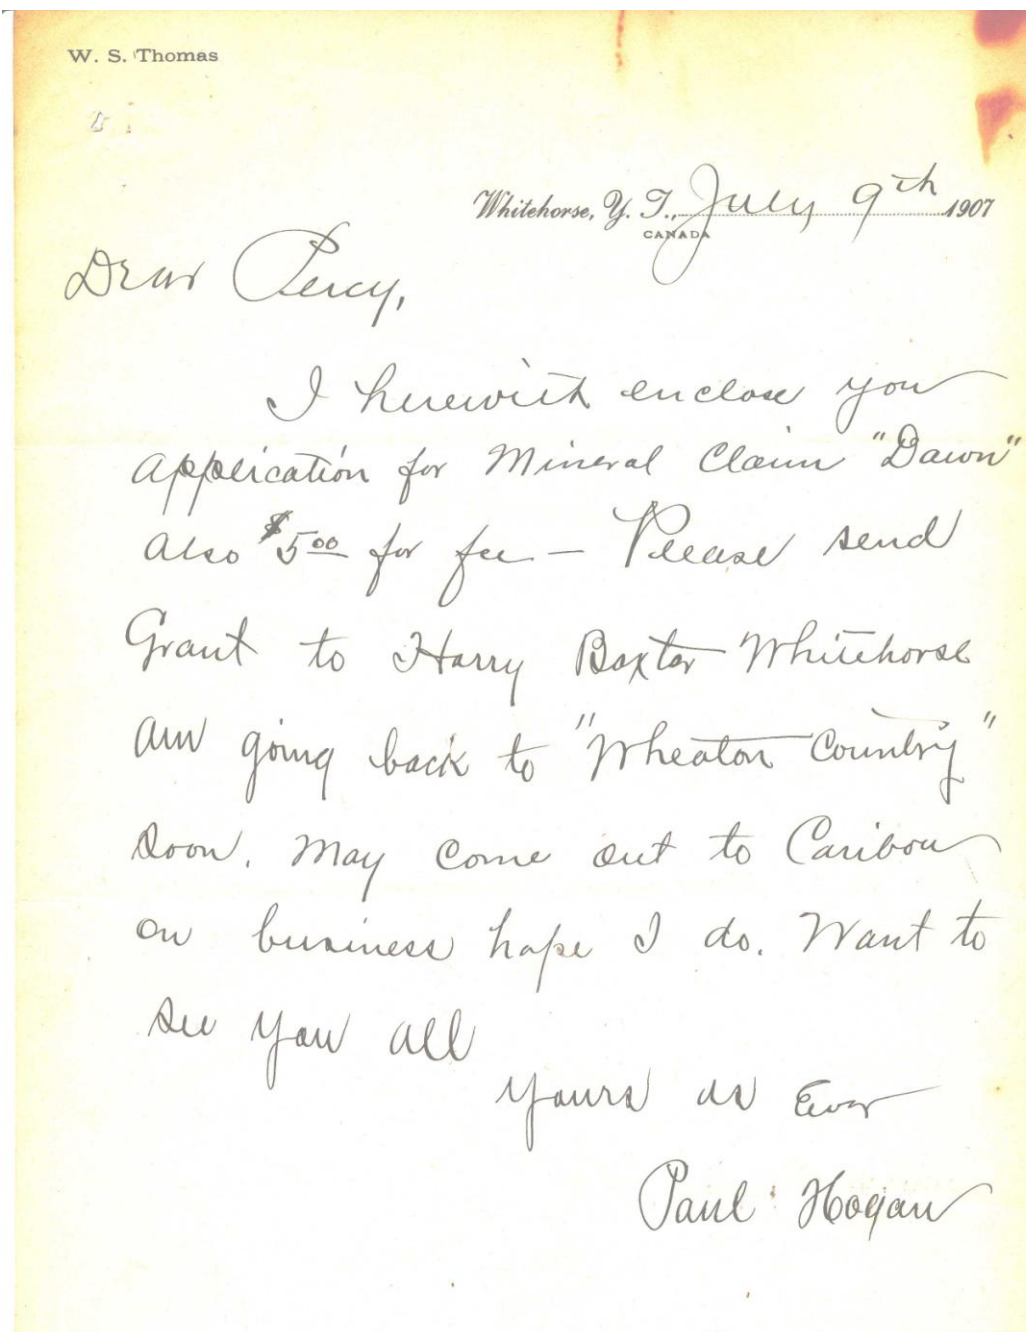 W. S. Thomas
Whitehorse, Y. T., July 9th 1907
CANADA
Dear Percy,
I herewith enclose you
application for Mineral Claim "Dawn"
also $5.00 for fee — Please send
Grant to Harry Baxter Whitehorse
am going back to "Wheaton Country"
soon. May come out to Caribou
on business hope I do. Want to
see you all
yours as Ever
Paul Hogan